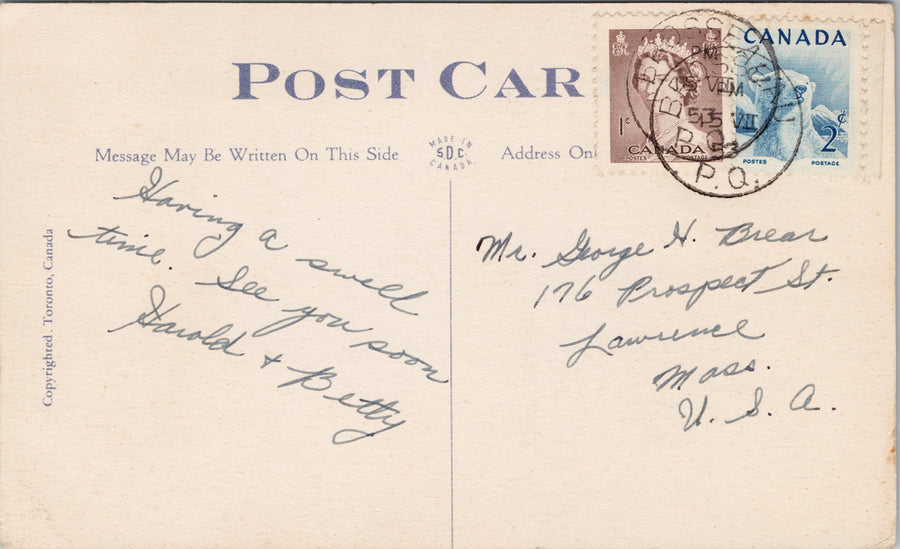 POST CAR
CANADA
1¢
CANADA
POSTES POSTAGE
2¢
POSTES POSTAGE
PM
VII
53
P.Q.
Message May Be Written On This Side
MADE IN
S.D.C.
CANADA.
Address Onl
Copyrighted. Toronto, Canada
Having a swell
time. See you soon
Harold + Betty
Mr. George H. Brear
176 Prospect St.
Lawrence
Mass.
U. S. A.